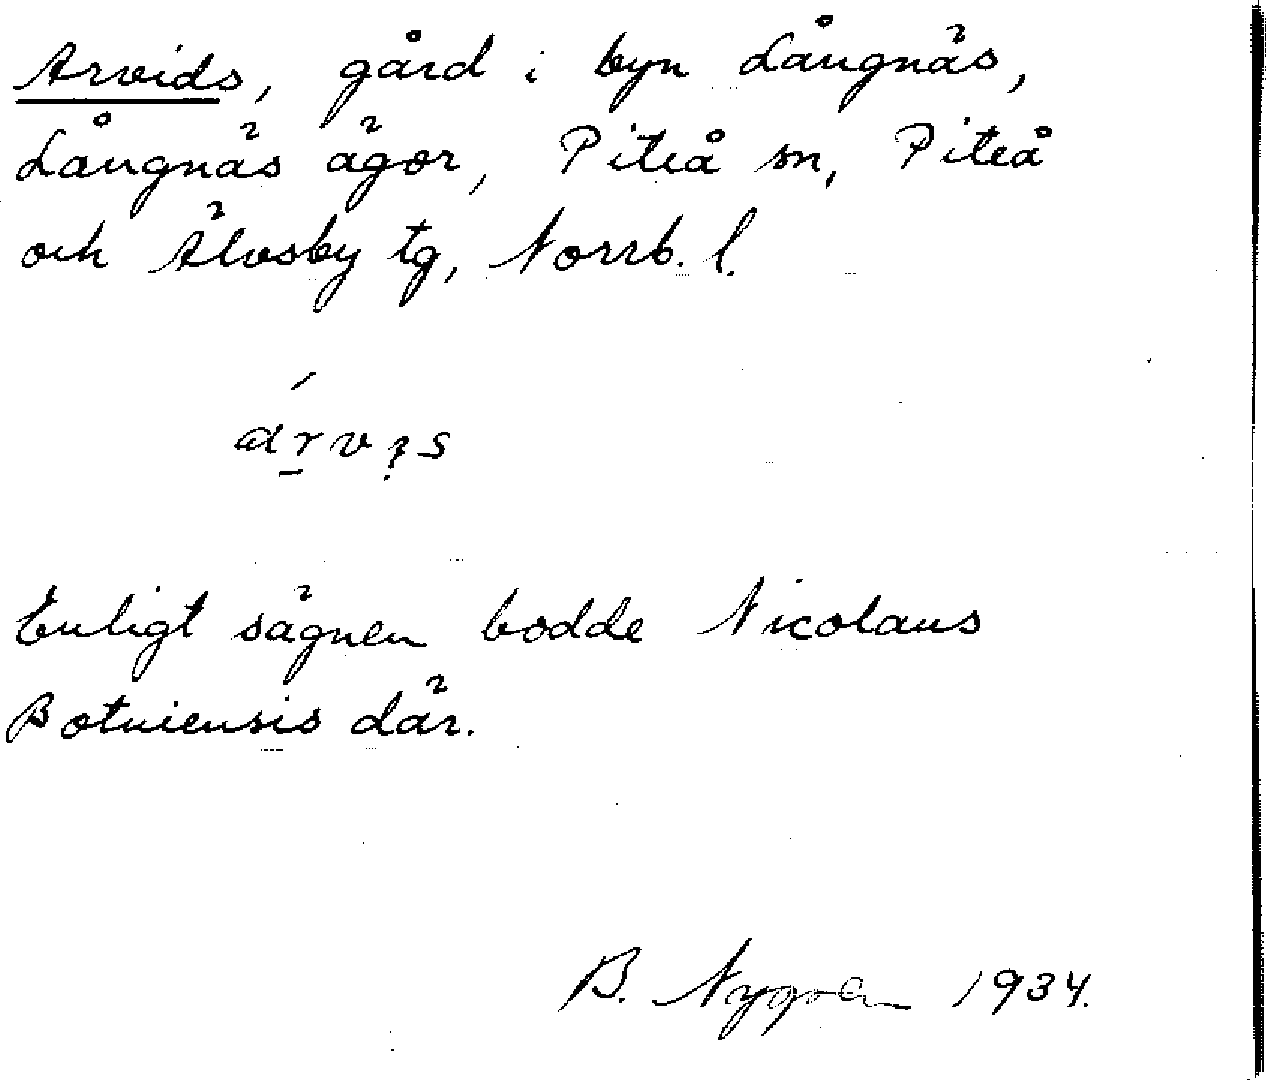 Arvids, gård i byn Långnäs,
Långnäs ägor, Piteå sn, Piteå
och Älvsby tg, Norrb. l.
Enligt sägnen bodde Nicolaus
Botniensis där.
B. Nygren 1934.